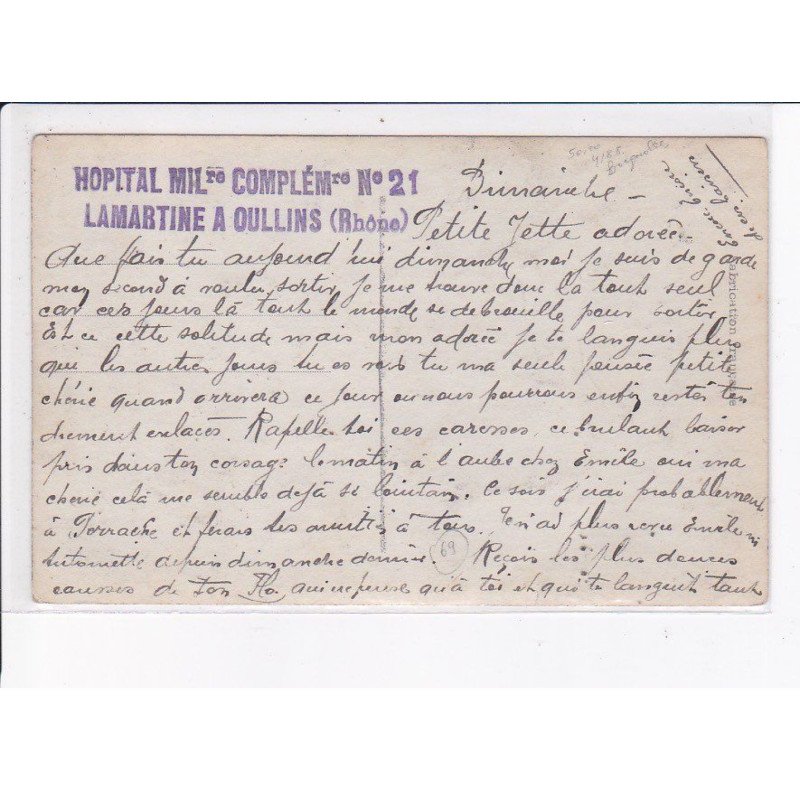 HOPITAL MILre COMPLÉMre No 21
LAMARTINE A OULLINS (Rhône)
Dimanche -
Petite Jette adorée -
Que fais tu aujourd'hui dimanche moi je suis de garde
mon second à voulu sortir je me trouve donc la tout seul
car ces jours là tout le monde se debrouille pour sortir
Est ce cette solitude mais mon adorée je te languis plus
que les autres jours tu es vois tu ma seule pensée petite
chérie quand arrivera ce jour ou nous pourrons enfin rester ten
drement enlacés. Rapelle toi ces caresses, ce brulant baiser
pris dans ton corsage le matin à l'aube chez Emile oui ma
cherie celà me semble dejà si lointain. Ce soir j'irai probablement
à Perrache et ferais tes amitiés à tous. J'en ai plus revu Emile ni
Antoinette depuis dimanche dernier. Reçois les plus douces
caresses de ton qui ne pense qu'à toi et qui te languit tant
Encore
un baiser
Fabrication française
50.00
4188
69